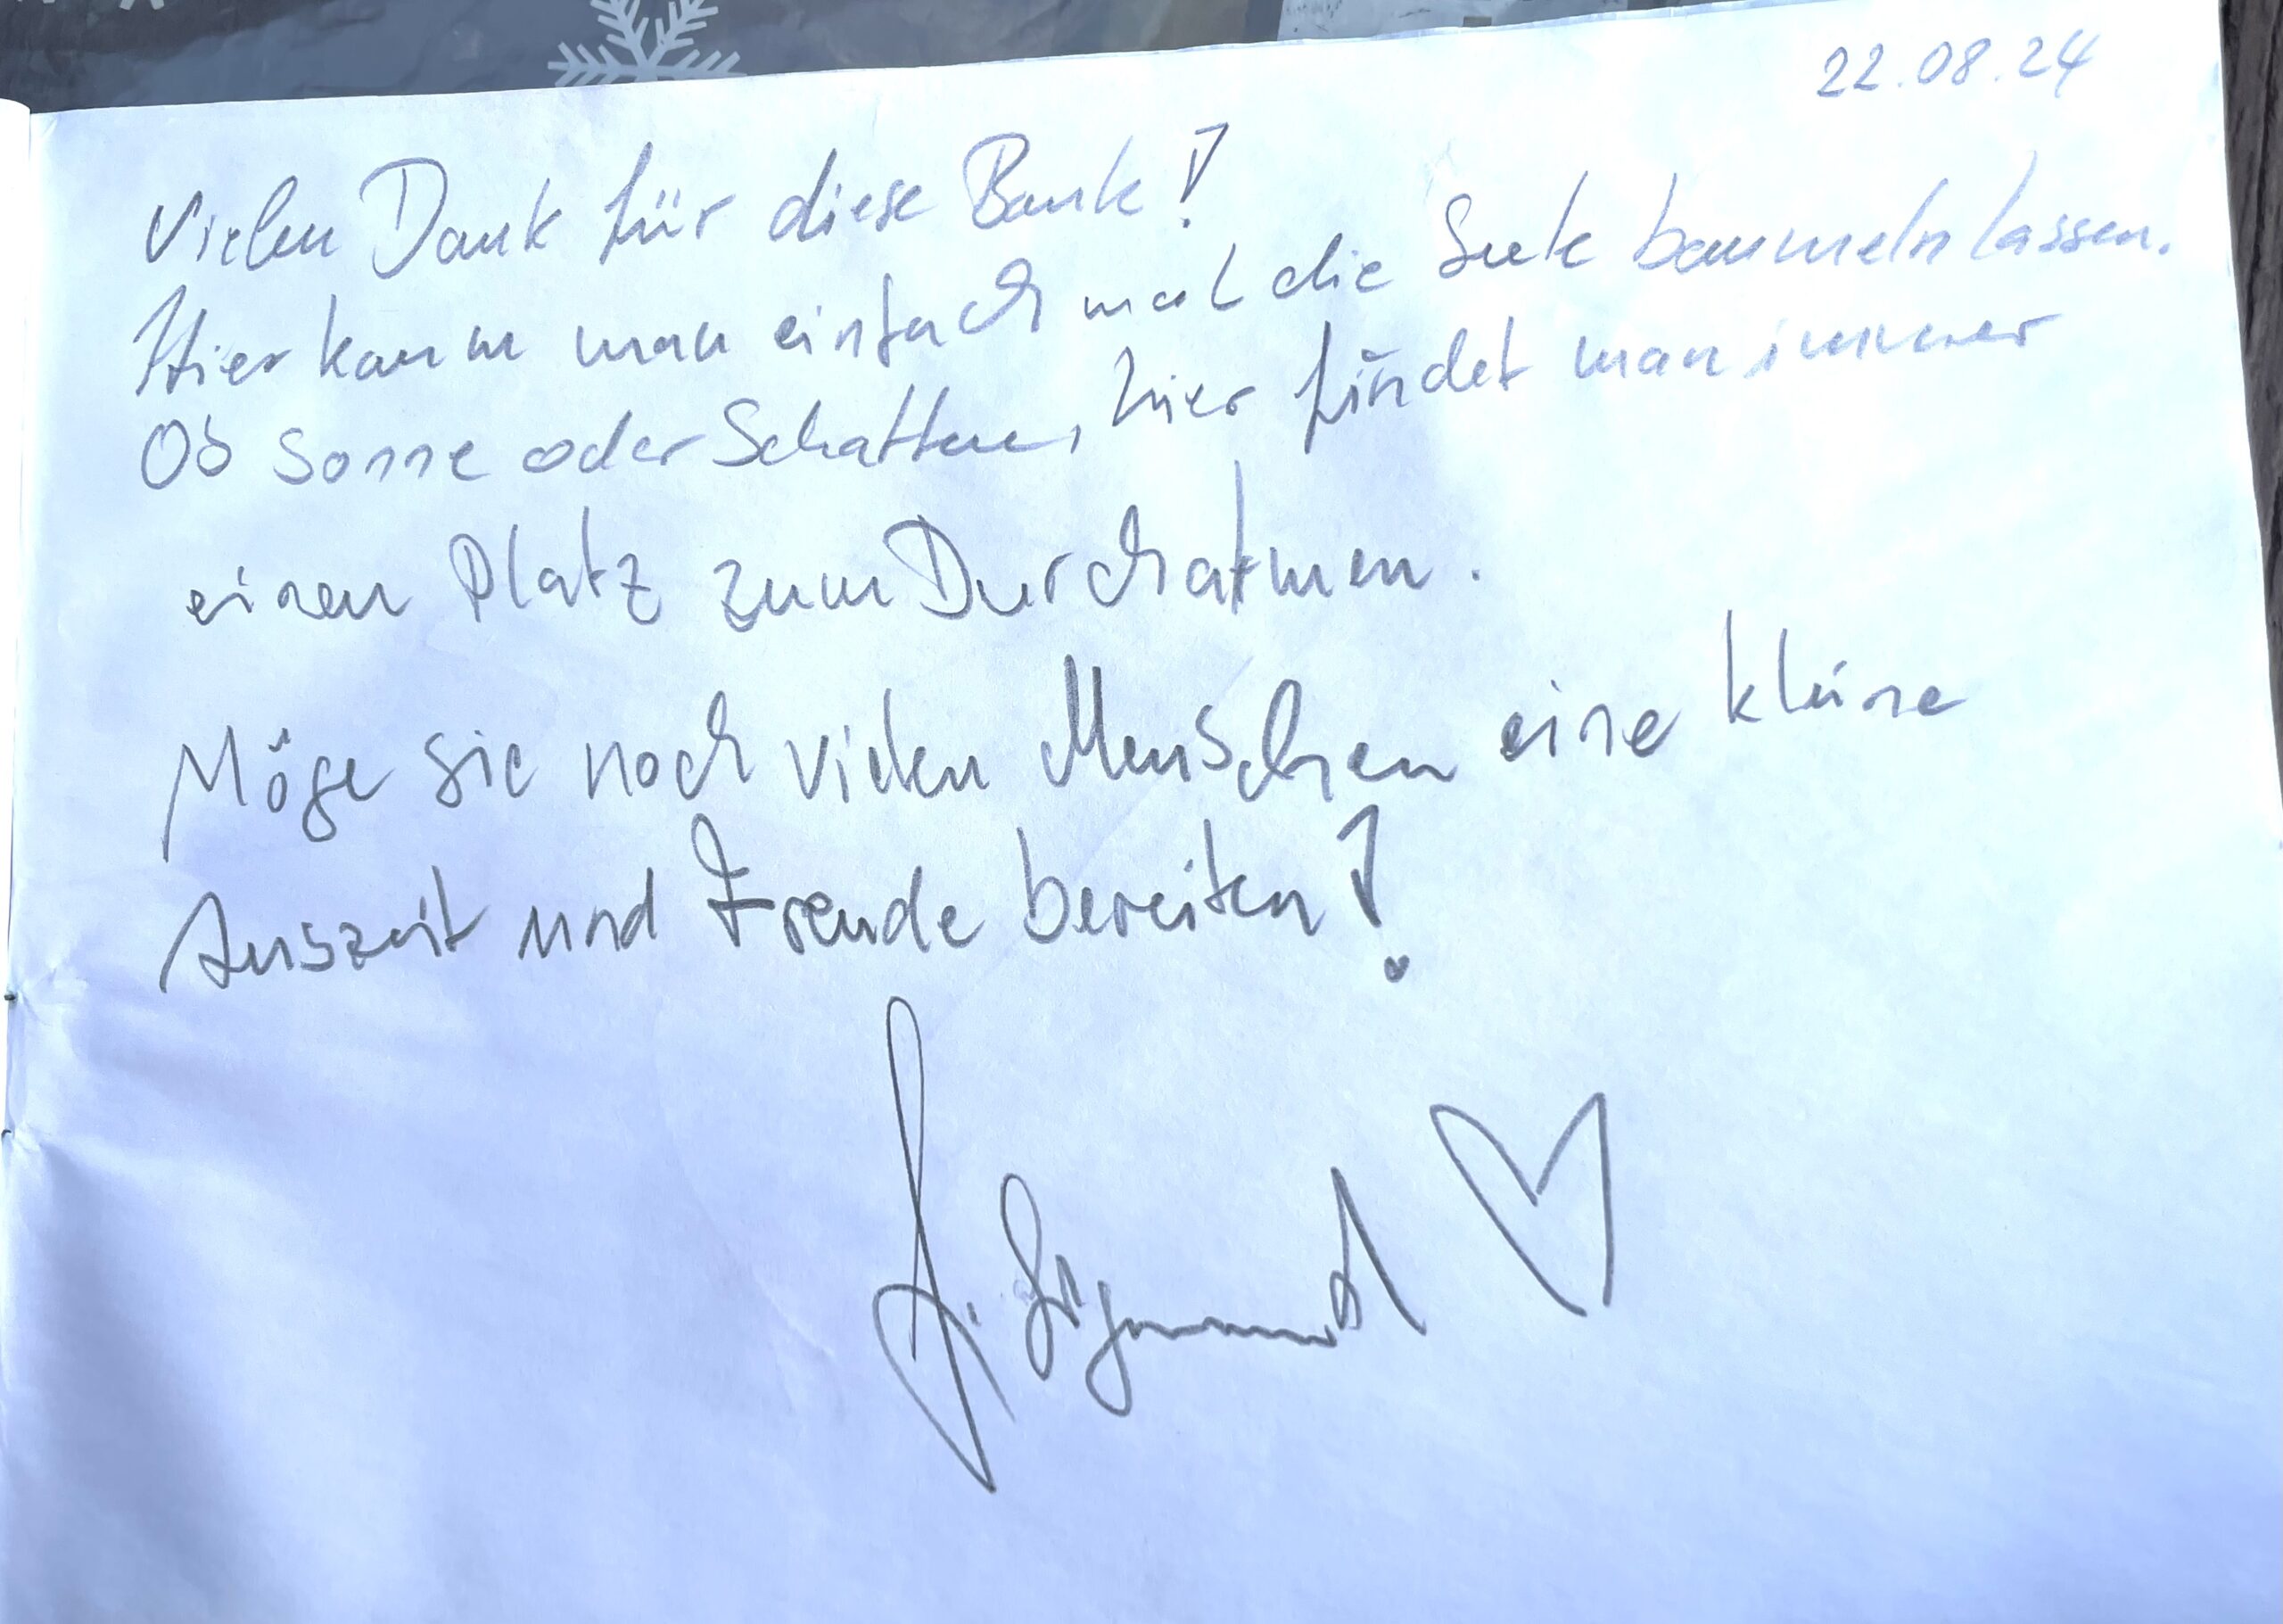 22.08.24
Vielen Dank für diese Bank!
Hier kann man einfach mal die Seele baumeln lassen.
Ob Sonne oder Schatten, hier findet man immer
einen Platz zum Durchatmen.
Möge sie noch vielen Menschen eine kleine
Auszeit und Freude bereiten!